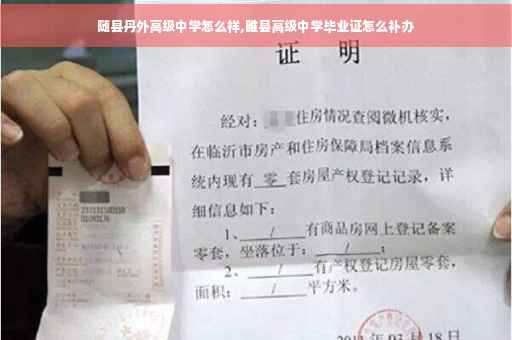 随县丹外高级中学怎么样,睢县高级中学毕业证怎么补办
证 明
经对: 住房情况查阅微机核实,
在临沂市房产和住房保障局档案信息系
统内现有 零 套房屋产权登记记录, 详
细信息如下:
1、 / 有商品房网上登记备案
零套, 坐落位于: / ;
2、 / 有产权登记房屋零套,
面积: / 平方米。
03月18日